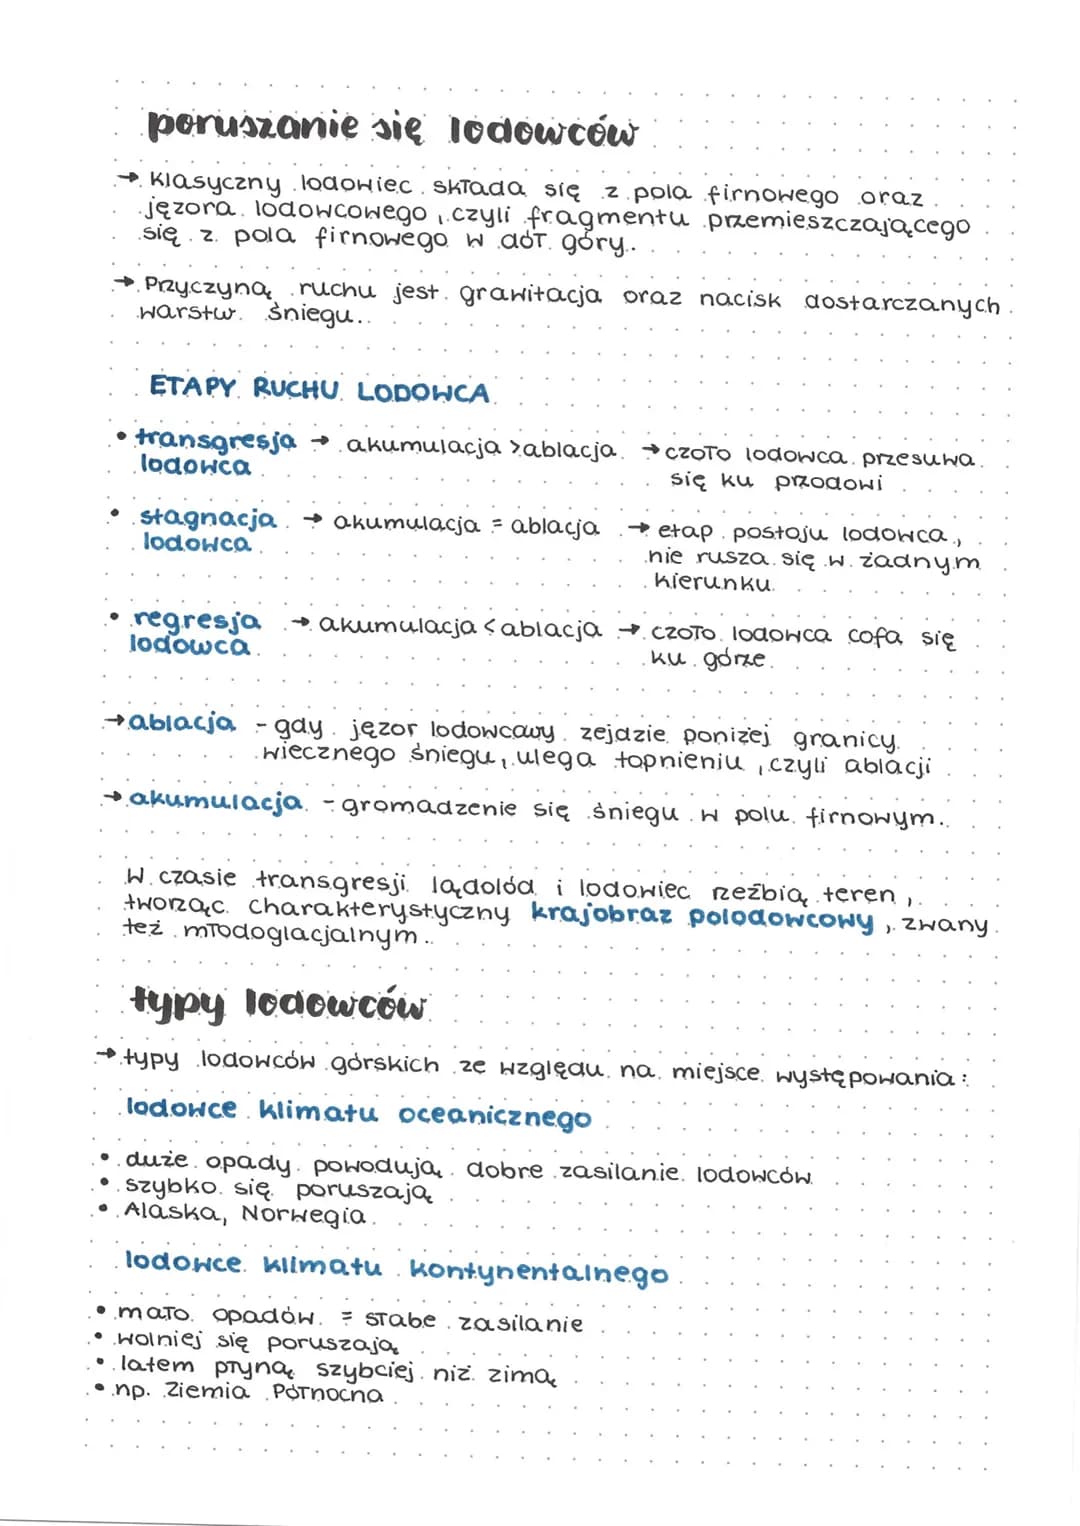 poruszanie się lodowców
→ Klasyczny lodowiec składa się z pola firnowego oraz
jęzora lodowcowego, czyli fragmentu przemieszczającego
się z pola firnowego w dół góry.
→ Przyczyną ruchu jest grawitacja oraz nacisk dostarczanych
warstw śniegu.
ETAPY RUCHU LODOWCA
• transgresja → akumulacja > ablacja → czoło lodowca przesuwa
lodowca się ku przodowi
• stagnacja → akumulacja = ablacja → etap postoju lodowca,
lodowca nie rusza się w żadnym
kierunku
• regresja → akumulacja < ablacja → czoło lodowca cofa się
lodowca ku górze
→ ablacja - gdy jęzor lodowcowy zejdzie poniżej granicy
wiecznego śniegu, ulega topnieniu, czyli ablacji
→ akumulacja - gromadzenie się śniegu w polu firnowym.
W czasie transgresji lądolód i lodowiec rzeźbią teren,
tworząc charakterystyczny krajobraz polodowcowy, zwany
też młodoglacjalnym.
typy lodowców
→ typy lodowców górskich ze względu na miejsce występowania:
lodowce klimatu oceanicznego
• duże opady powodują dobre zasilanie lodowców
• szybko się poruszają
• Alaska, Norwegia
lodowce klimatu kontynentalnego
• mało opadów = słabe zasilanie
• wolniej się poruszają
• latem płyną szybciej niż zimą
• np. Ziemia Północna